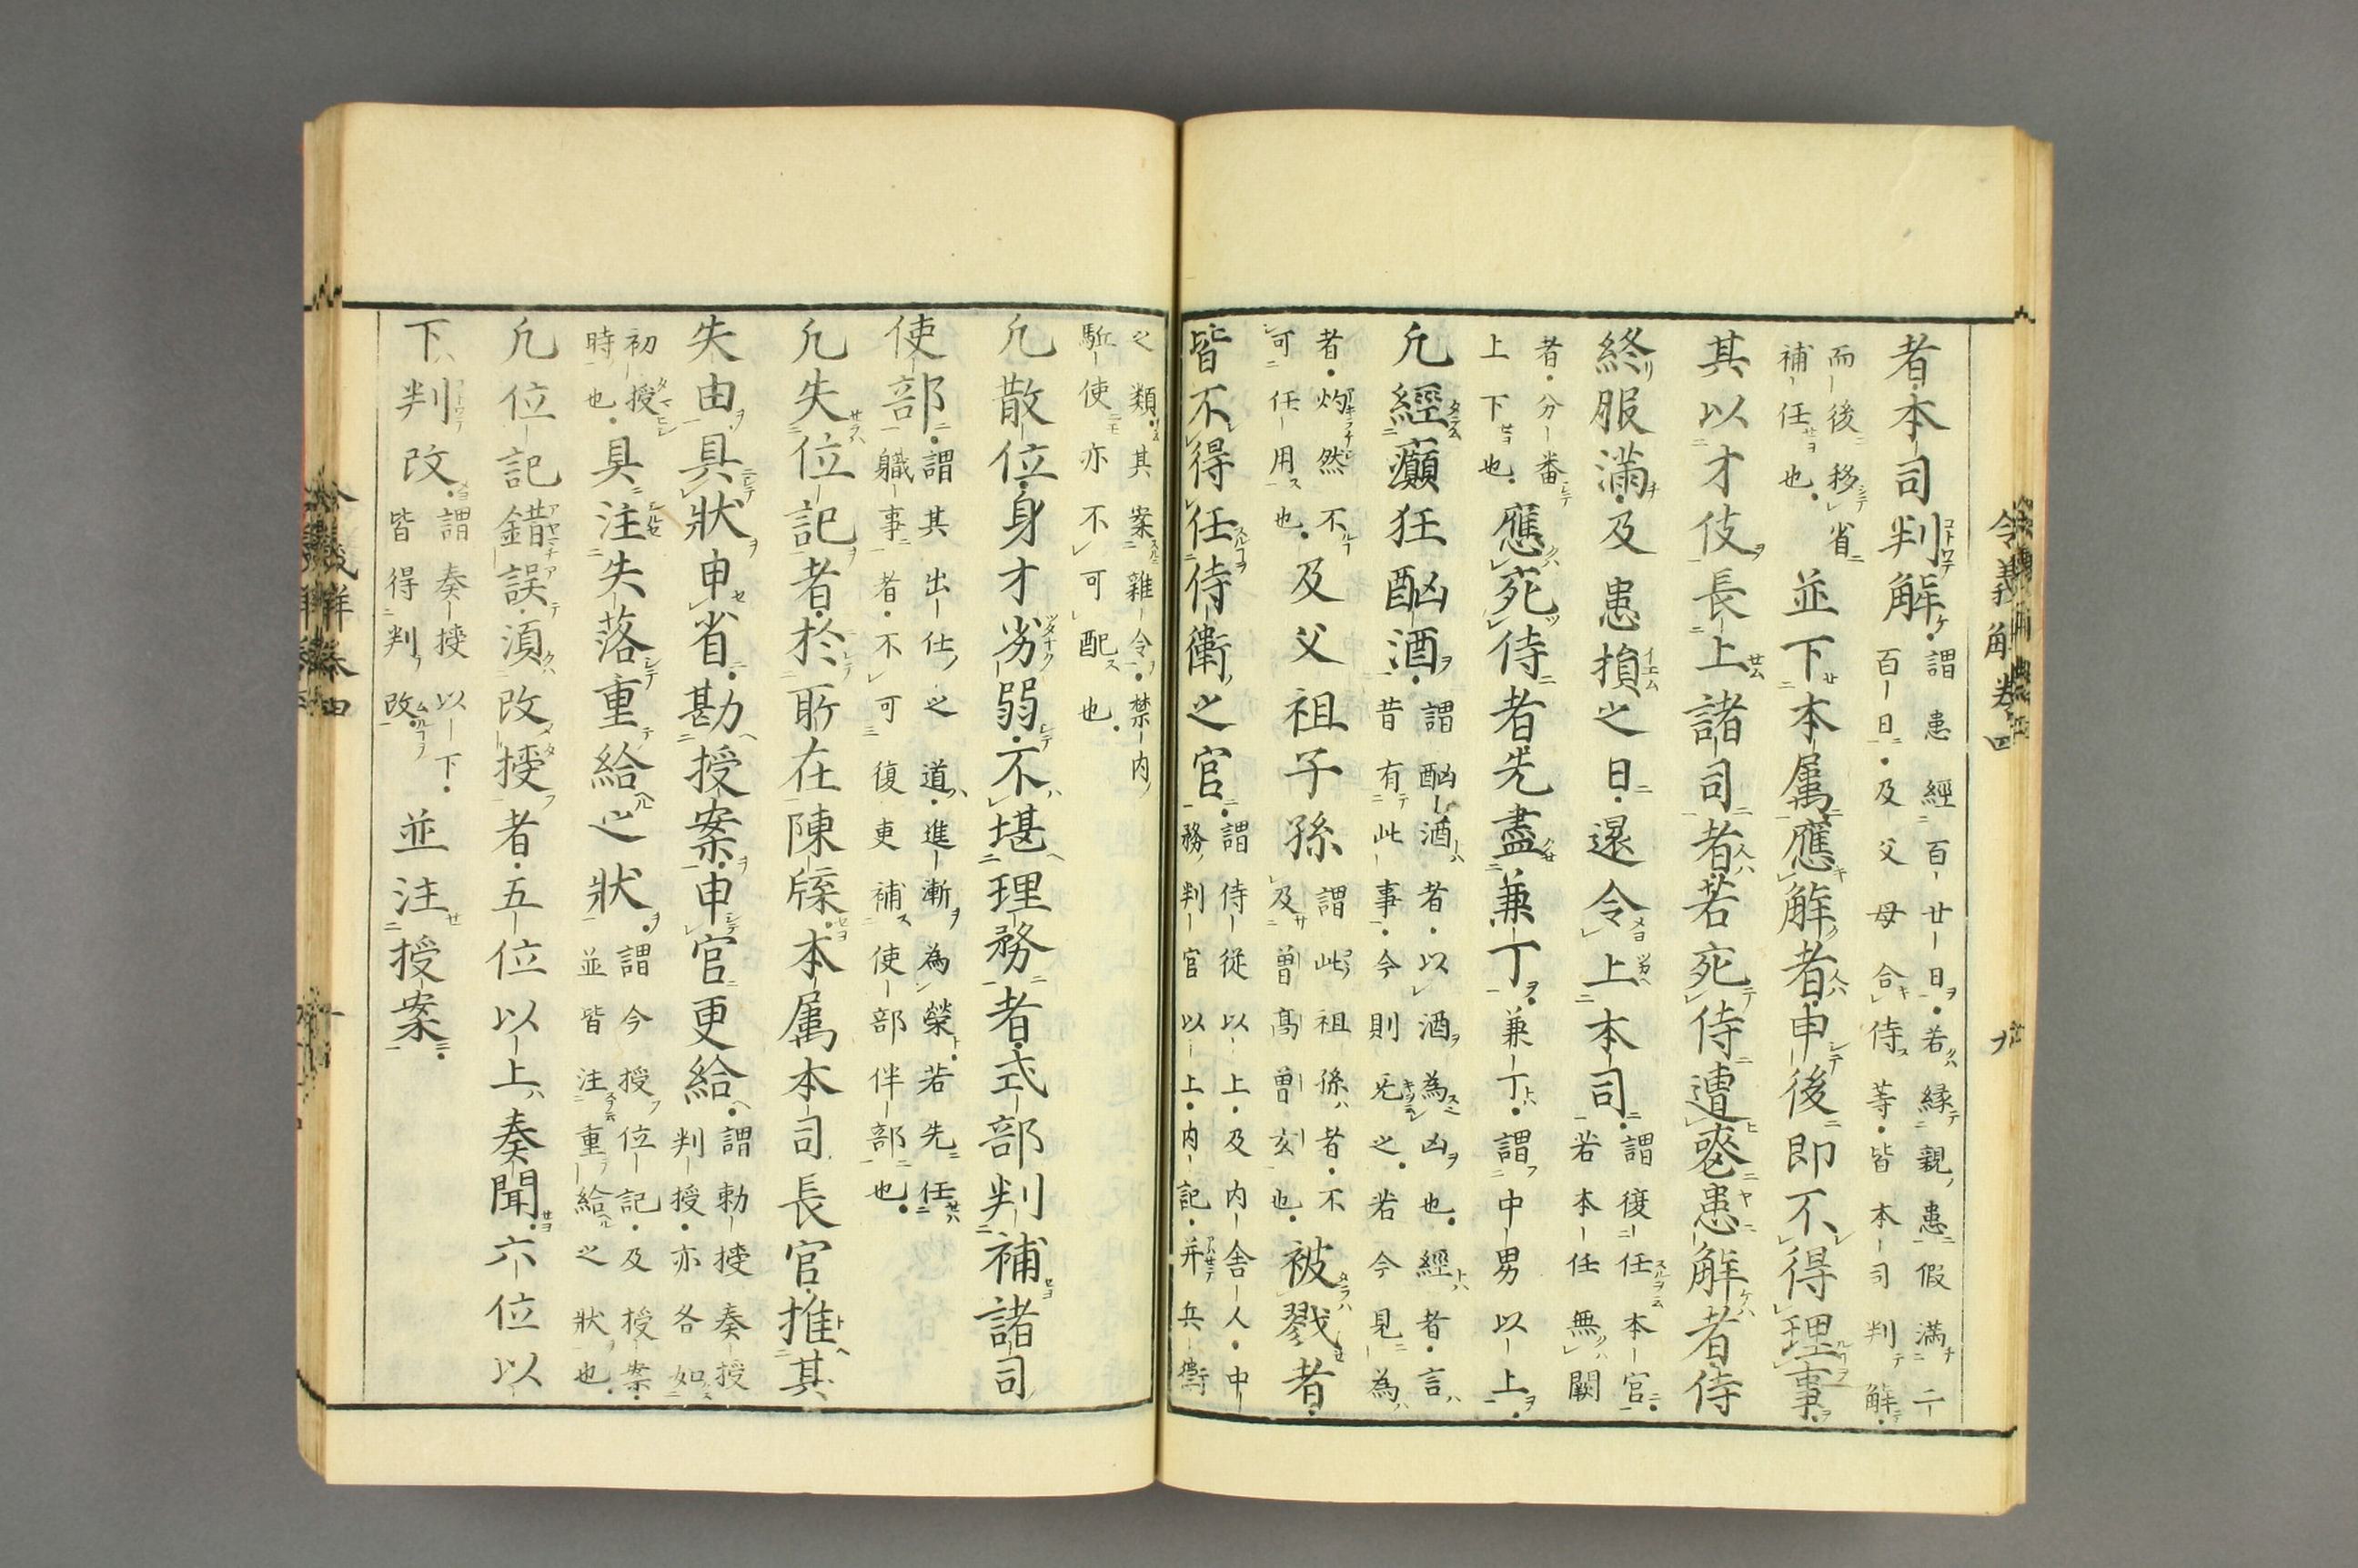 者本司判解謂患經百廿日若縁親患假滿二
百日及父母合侍等皆本司判解
而後移省
補任也並下本属應解者申後即不得理事
其以才伎長上諸司者若死侍遭喪患解者侍
終服滿及患損之日還令上本司謂復任本官
若本任無闕
者分番
上下也應死侍者先盡兼丁兼丁謂中男以上
凢經癲狂酗酒謂酗酒者以酒為凶也經者言
昔有此事今則无之若今見為
者灼然不
可任用也及父祖子孫謂此祖孫者不
及曽高曽玄也被戮者
皆不得任侍衞之官謂侍従以上及内舎人中
務判官以上内記并兵衞
之類其案雜令禁内
駈使亦不可配也
凢散位身才劣弱不堪理務者式部判補諸司
使部謂其出仕之道進漸為榮若先任
職事者不可復更補使部伴部也
凢失位記者於所在陳牒本属本司長官推其
失由具狀申省勘授案申官更給謂勅授奏授
判授亦各如
初授
時也具注失落重給之狀謂今授位記及授案
並皆注重給之狀也
凢位記錯誤須改授者五位以上奏聞六位以
下判改謂奏授以下
皆得判改並注授案
令義解卷四